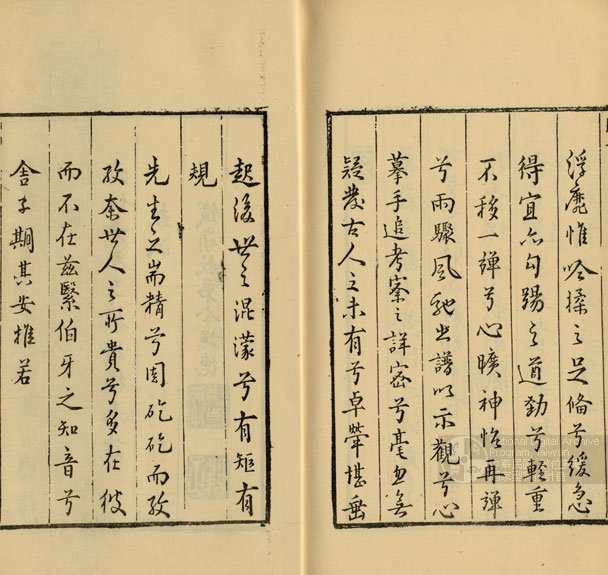 浮靡惟吟揉之足備兮緩急
得宜亦勾踢之遒勁兮輕重
不移一彈兮心曠神怡再彈
兮雨驟風馳出譜以示觀兮心
摹手追考察之詳密兮毫忽無
疑發古人之未有兮卓犖堪垂
起後世之混濛兮有矩有
規
先生之耑精兮固矻矻而孜
孜奈世人之所貴兮多在彼
而不在茲緊伯牙之知音兮
舍子期其安推若
National Digital Archive
Program, Taiwan